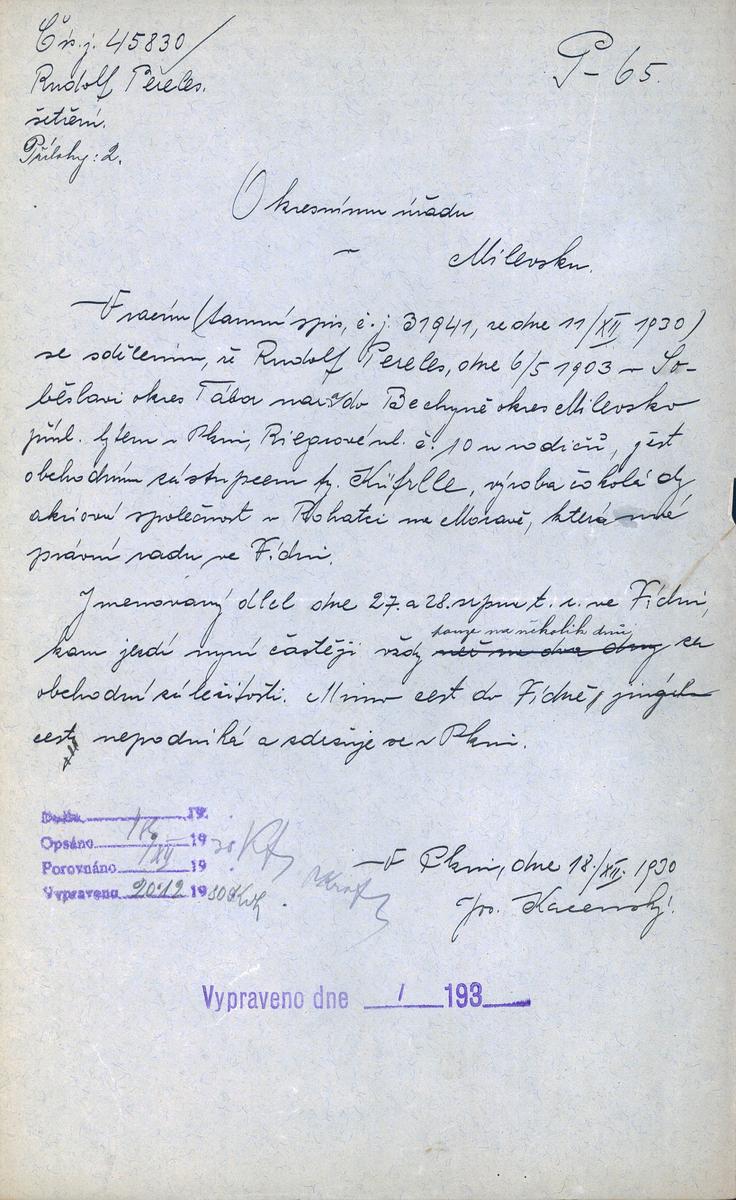 Čís. j. 45830/
Rudolf Pereles.
šetření.
Přílohy: 2.
P-65.
Okresnímu úřadu
Milevsku.
Vracím (tamní spis, č. j. 31941, ze dne 11/XII 1930)
se sdělením, že Rudolf Pereles, dne 6/5 1903 – So-
běslavi okres Tábor nar. do Bechyně okres Milevsko
přísl. bytem v Plzni, Riegrově ul. č. 10 u rodičů, jest
obchodním zástupcem fy. Küfrlle, výroba čokolády
akciová společnost v Rohatci na Moravě, která má
právní radu ve Vídni.
Jmenovaný dlel dne 27. a 28. srpna t. r. ve Vídni,
pouze na několik dnů
kam jezdí nyní častěji vždy než na dva dny za
obchodní záležitostí. Mimo cest do Vídně, jiných
cest nepodniká a zdržuje se v Plzni.
Došlo 19
Opsáno 19 30
Porovnáno /XII 19
Vypraveno 20 12 19 30
V Plzni, dne 18/XII. 1930
Vypraveno dne / 193